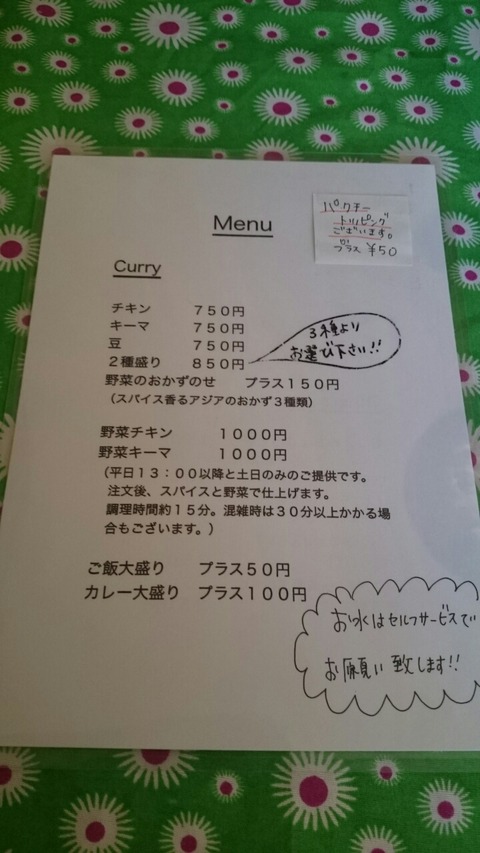 Menu
パクチー
トッピング
ございます。
プラス ¥50
Curry
チキン　７５０円
キーマ　７５０円
豆　７５０円
２種盛り　８５０円
３種より
お選び下さい!!
野菜のおかずのせ　プラス１５０円
（スパイス香るアジアのおかず３種類）
野菜チキン　１０００円
野菜キーマ　１０００円
（平日１３：００以降と土日のみのご提供です。
注文後、スパイスと野菜で仕上げます。
調理時間約１５分。混雑時は３０分以上かかる場
合もございます。）
ご飯大盛り　プラス５０円
カレー大盛り　プラス１００円
お水はセルフサービスで
お願い致します!!